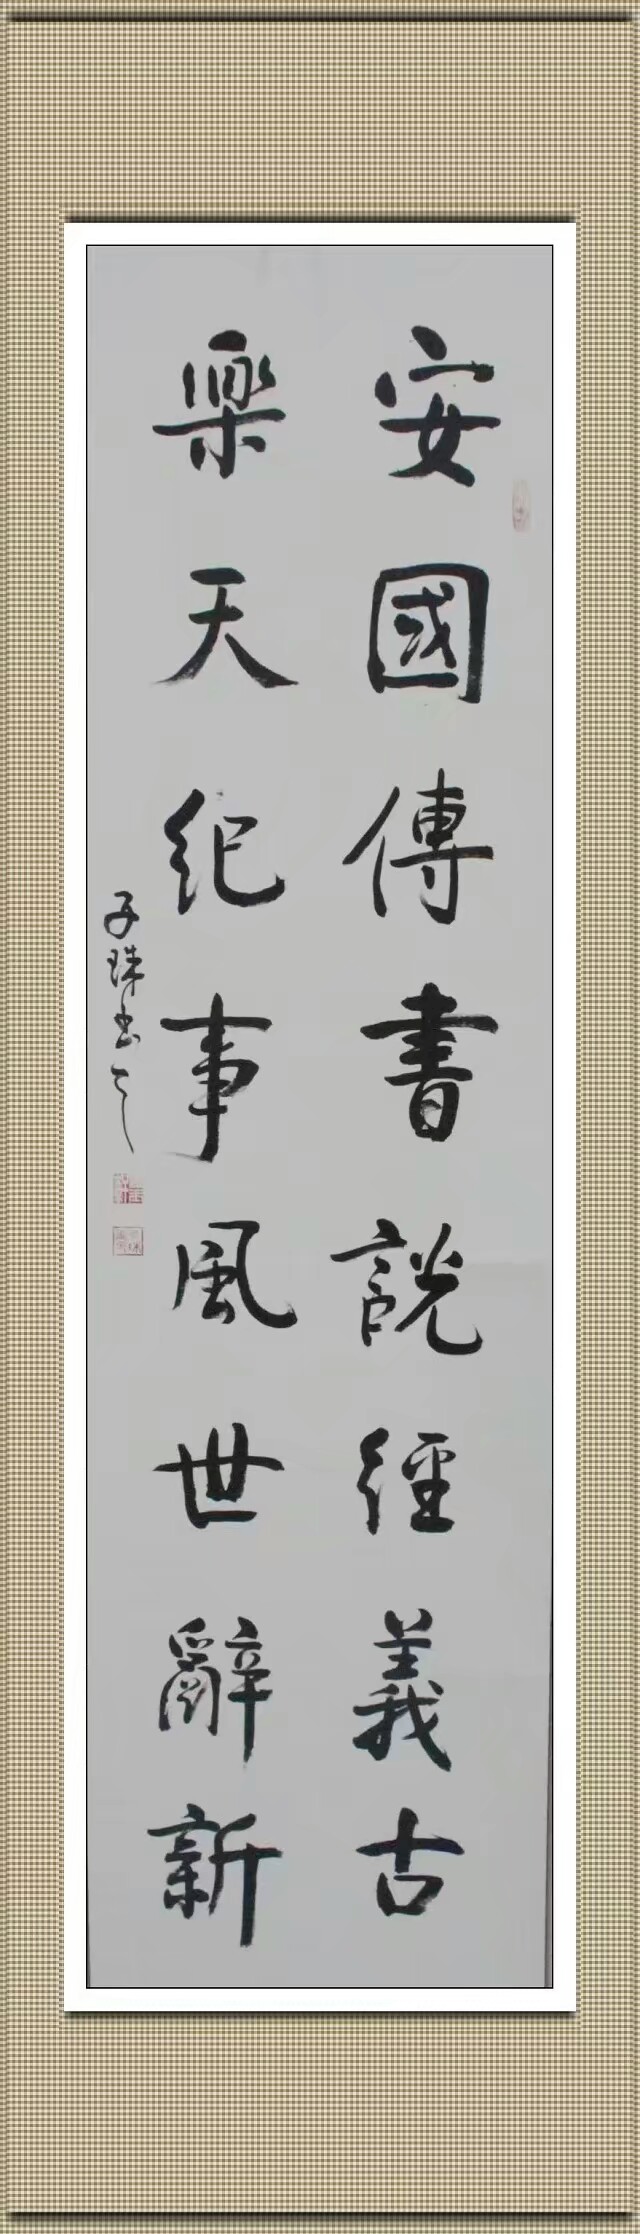 安國傳書說經義古
樂天紀事風世辭新
子珠书之